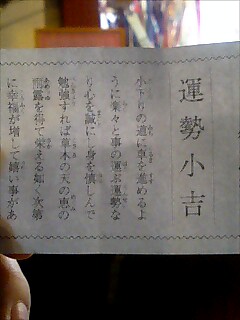 運勢小吉
小下りの道に車を進めるよ
うに楽々と事の運ぶ運勢な
り心を誠にし身を慎しんで
勉強すれば草木の天の恵の
雨露を得て栄える如く次第
に幸福が増して嬉い事があ